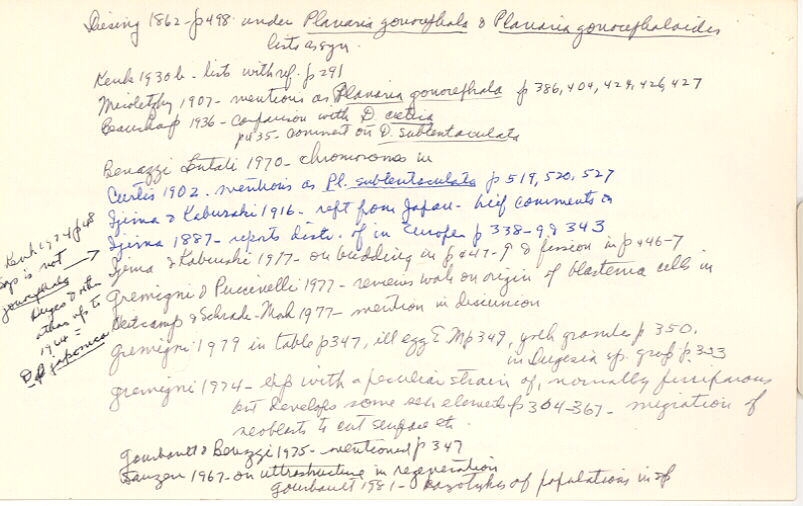 Diesing 1862 - p498 under Planaria gonocephala & Planaria gonocephaloides
lists as syn.
Kenk 1930b - lists with ref. p 291
Micoletzky 1907 - mentions as Planaria gonocephala p 386, 404, 424, 426, 427
Beauchamp 1936 - comparison with D. cretica
p435 - comment on D. subtentaculata
Benazzi Lentati 1970 - chromosomes in
Curtis 1902 - mentions as Pl. subtentaculata p 519, 520, 527
Ijima & Kaburaki 1916 - rept from Japan - brief comments on
Ijima 1887 - reports distr. of in Europe p 338-9 & 343
Ijima & Kaburaki 1917 - on budding in p 447-9 & fission in p 446-7
Gremigni & Puccinelli 1977 - reviews work on origin of blastema cells in
Oetcamp & Schrade-Mok 1977 - mention in discussion
Gremigni 1979 in table p347, ill egg & Mp 349, yolk granule p 350.
in Dugesia sp. group p. 333
Gremigni 1974 - exp with a peculiar strain of, normally fissiparous
but develops some sex elements p 364-367 - migration of
neoblasts to cut surface etc.
Gourbault & Benazzi 1975 - mentioned p 347
Sauzin 1967 - on ultrastructure in regeneration
Gourbault 1981 - karotypes of populations in sp
Kenk 1974 p 48
sp is not
gonocephala
Duges & other
athors up to
1964 =
D. japonica